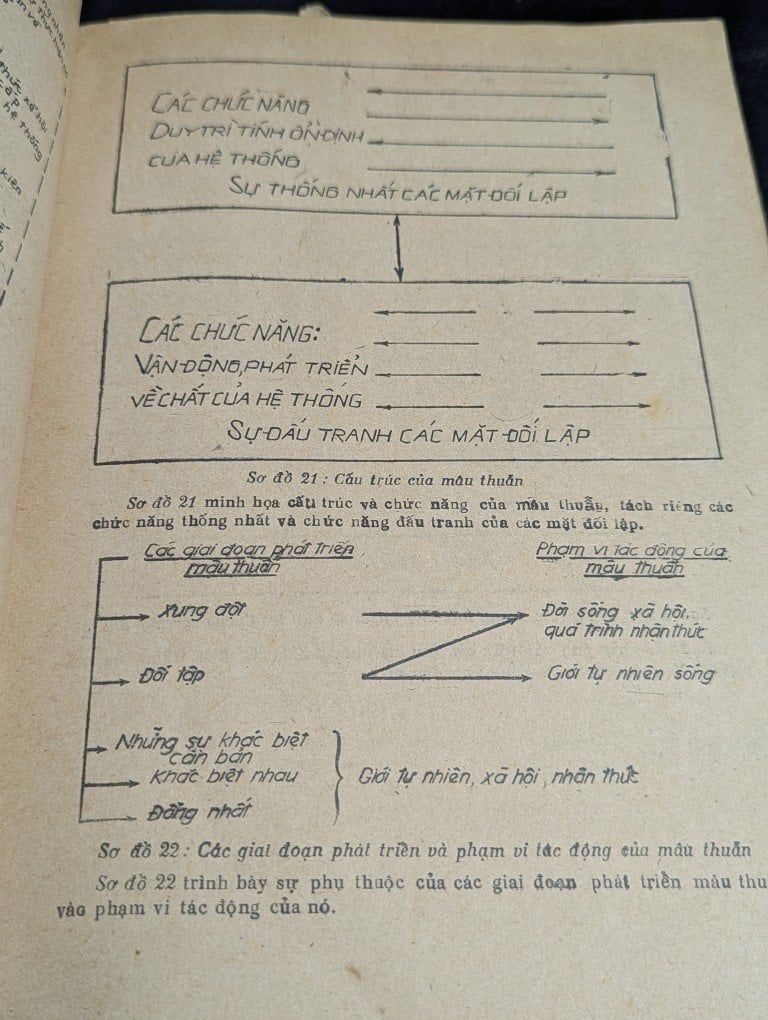 thức xã hội
hệ thống
kiên
CÁC CHỨC NĂNG
DUY TRÌ TÍNH ỔN ĐỊNH
CỦA HỆ THỐNG
SỰ THỐNG NHẤT CÁC MẶT ĐỐI LẬP
CÁC CHỨC NĂNG:
VẬN ĐỘNG, PHÁT TRIỂN
VỀ CHẤT CỦA HỆ THỐNG
SỰ ĐẤU TRANH CÁC MẶT ĐỐI LẬP
Sơ đồ 21 : Cấu trúc của mâu thuẫn
Sơ đồ 21 minh họa cấu trúc và chức năng của mâu thuẫn, tách riêng các
chức năng thống nhất và chức năng đấu tranh của các mặt đối lập.
Các giai đoạn phát triển
mâu thuẫn
Phạm vi tác động của
mâu thuẫn
Xung đột
Đời sống xã hội,
quá trình nhân thức
Đối lập
Giới tự nhiên sống
Những sự khác biệt
căn bản
Khác biệt nhau
Giới tự nhiên, xã hội, nhân thức
Đồng nhất
Sơ đồ 22 : Các giai đoạn phát triển và phạm vi tác động của mâu thuẫn
Sơ đồ 22 trình bày sự phụ thuộc của các giai đoạn phát triển mâu thu
vào phạm vi tác động của nó.